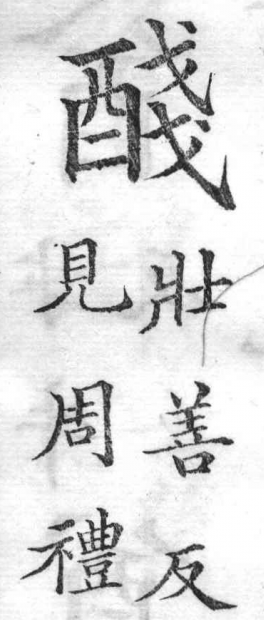 醆
壯善反
見周禮